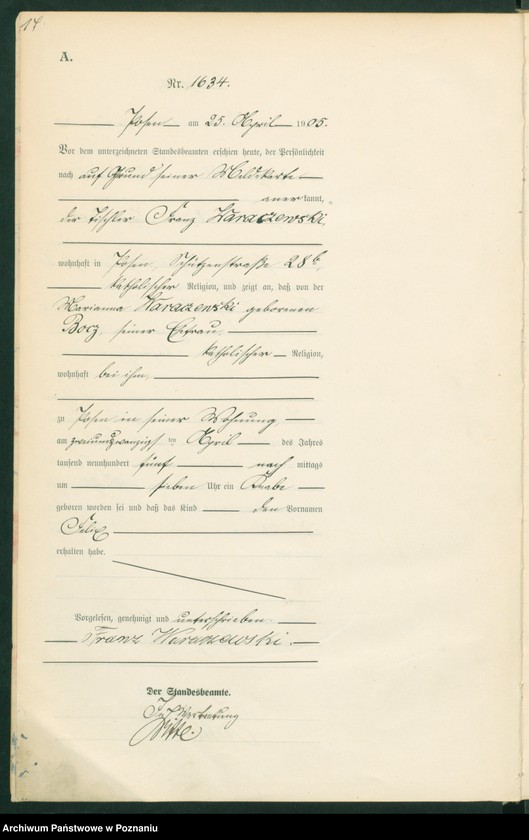 14
A.
Nr. 1634.
Posen am 25. April 1905.
Vor dem unterzeichneten Standesbeamten erschien heute, der Persönlichkeit
nach auf Grund seiner Meldekarte
anerkannt,
der Tischler Franz Waraczewski,
wohnhaft in Posen, Schützenstraße 28b,
katholischer Religion, und zeigte an, daß von der
Marianna Waraczewski geborenen
Bocz, seiner Ehefrau
katholischer Religion,
wohnhaft bei ihm,
zu Posen in seiner Wohnung
am zweiundzwanzigsten April des Jahres
tausend neunhundert fünf nach mittags
um sieben Uhr ein Knabe
geboren worden sei und daß das Kind den Vornamen
Felix
erhalten habe.
Vorgelesen, genehmigt und unterschrieben
Franz Waraczewski.
Der Standesbeamte.
In Vertretung
Witte.
Archiwum Państwowe w Poznaniu